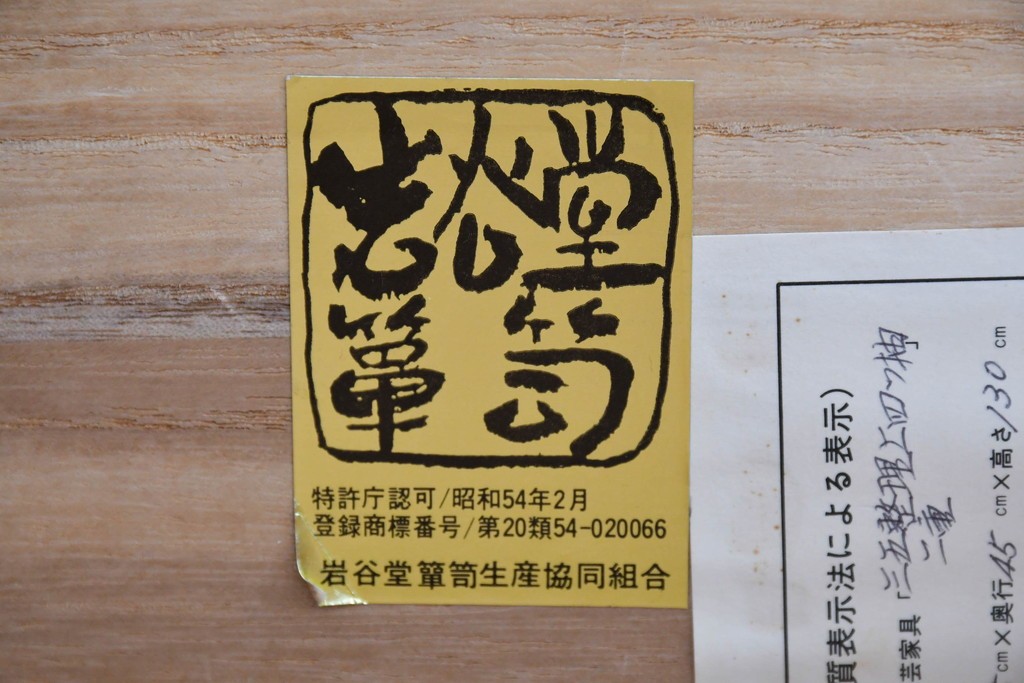 岩谷堂
簞笥
特許庁認可/昭和54年2月
登録商標番号/第20類54-020066
岩谷堂簞笥生産協同組合
質表示法による表示)
芸家具「三五整理上四ツ抽
二重
cm×奥行45cm×高さ130cm